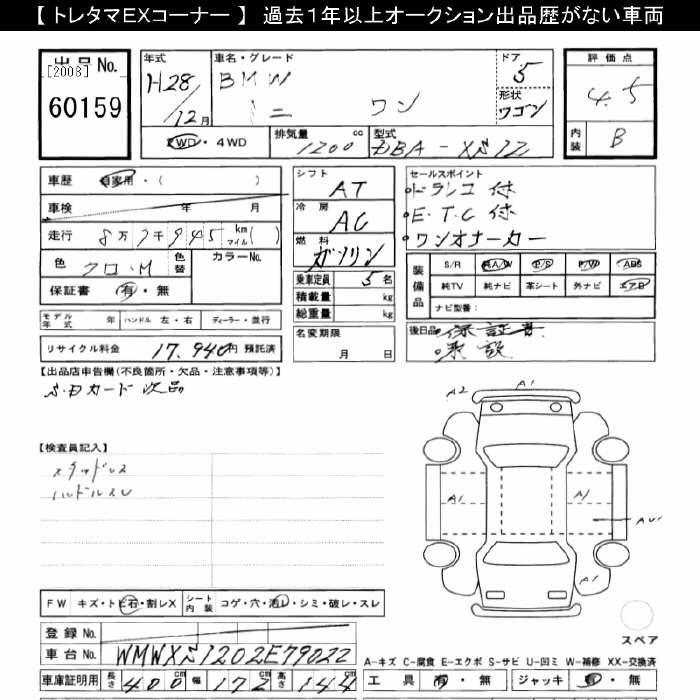 【 トレタマEXコーナー 】 過去1年以上オークション出品歴がない車両
出品 No.
[2008]
60159
年式
H28/12月
車名・グレード
BMW
ミニ ワン
ドア
5
形状
ワゴン
2WD・4WD
排気量 1200 cc
型式 DBA-XS12
評価点
4.5
内装
B
車歴 自家用・( )
車検 年 月
走行 8万7千945 km マイル( )
色 クロ・M
色替
カラーNo.
保証書 有・無
モデル年式 年 ハンドル 左・右 ディーラー・並行
リサイクル料金 17,940円 預託済
シフト AT
冷房 AC
燃料 ガソリン
乗車定員 5名
積載量 kg
総重量 kg
名変期限
月 日
セールスポイント
ドラレコ 付
E・T・C 付
ワンオーナーカー
装備品
S/R AA/W P/S P/W ABS
純TV 純ナビ 革シート 外ナビ エアB
ナビ型番:
後日品 保証書
取説
【出品店申告欄(不良箇所・欠品・注意事項等)】
S・Dカード欠品
【検査員記入】
スタッドレス
ハンドルスレ
A2
A1
A1
A1
A1
FW キズ・トビ石・割レX シート内装 コゲ・穴・汚レ・シミ・破レ・スレ
登録 No.
車台 No. WMWXS1202E79022
車庫証明用 長さ 400cm 幅 172cm 高さ 144cm
スペア
A-キズ C-腐食 E-エクボ S-サビ U-凹ミ W-補修 XX-交換済
工具 有・無 ジャッキ 有・無